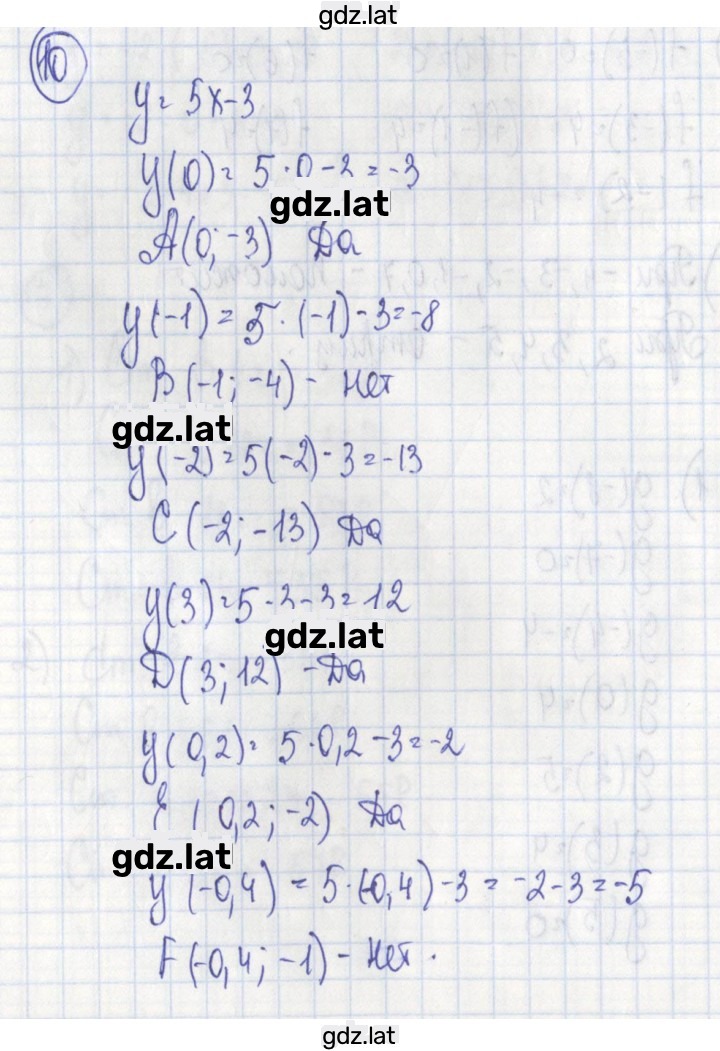 gdz.lat
10
y = 5x-3
y(0) = 5·0-3 = -3
gdz.lat
A(0; -3) Да
y(-1) = 5·(-1)-3 = -8
B(-1; -4) - Нет
gdz.lat
y(-2) = 5(-2)-3 = -13
C(-2; -13) Да
y(3) = 5·3-3 = 12
gdz.lat
D(3; 12) - Да
y(0,2) = 5·0,2-3 = -2
E(0,2; -2) Да
gdz.lat
y(-0,4) = 5·(-0,4)-3 = -2-3 = -5
F(-0,4; -1) - Нет.
gdz.lat